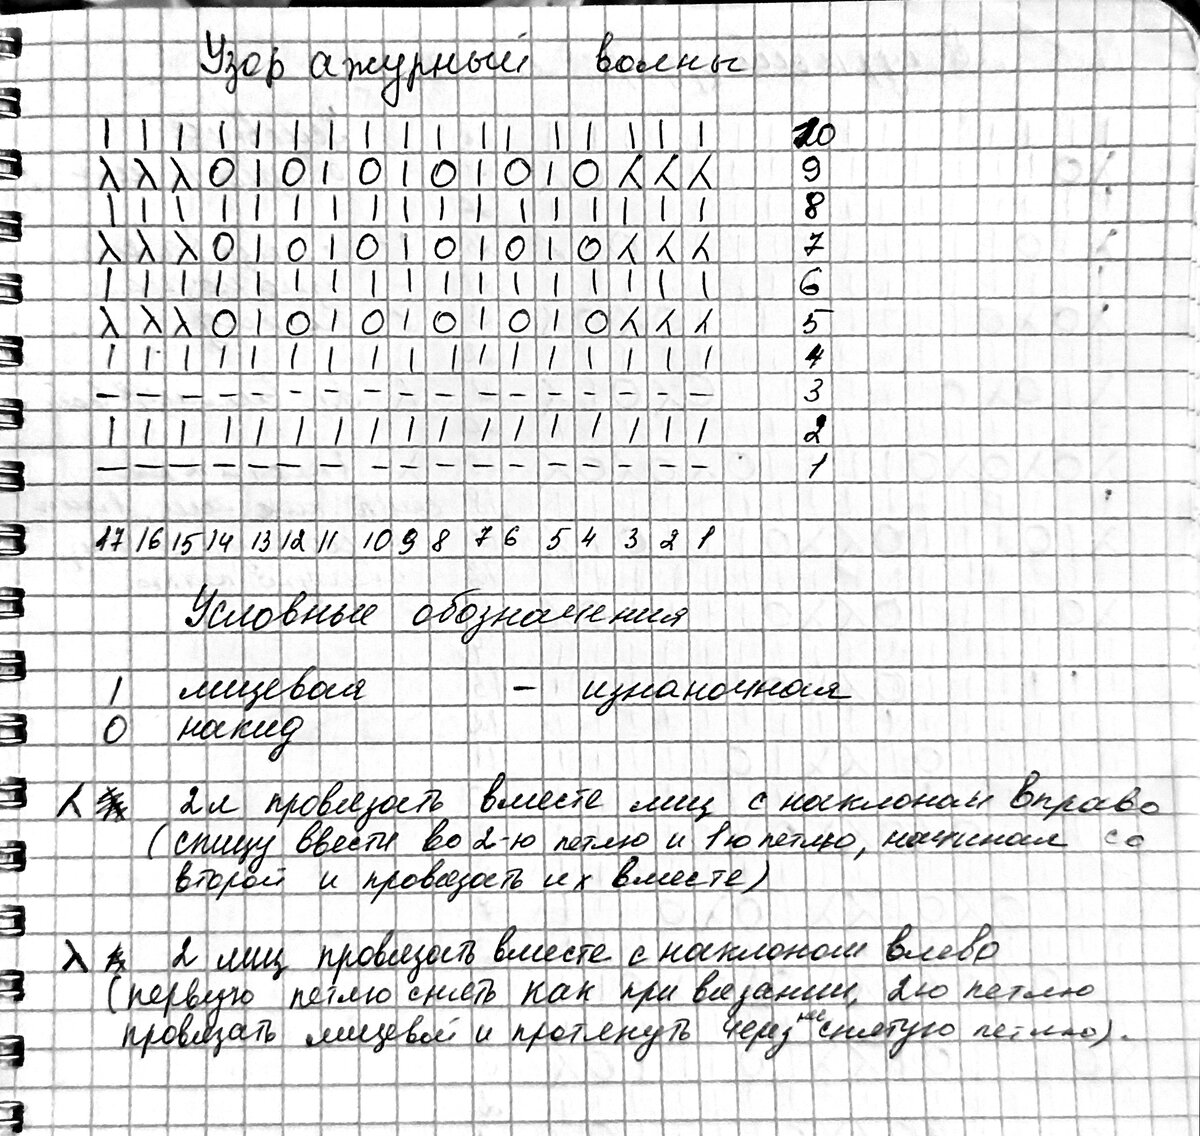 Узор ажурный волны
| | | | | | | | | | | | | | | | | 10
λ λ λ 0 | 0 | 0 | 0 | 0 | 0 ʎ ʎ ʎ 9
| | | | | | | | | | | | | | | | | 8
λ λ λ 0 | 0 | 0 | 0 | 0 | 0 ʎ ʎ ʎ 7
| | | | | | | | | | | | | | | | | 6
λ λ λ 0 | 0 | 0 | 0 | 0 | 0 ʎ ʎ ʎ 5
| | | | | | | | | | | | | | | | | 4
– – – – – – – – – – – – – – – – – 3
| | | | | | | | | | | | | | | | | 2
– – – – – – – – – – – – – – – – – 1
17 16 15 14 13 12 11 10 9 8 7 6 5 4 3 2 1
Условные обозначения
| лицевая – изнаночная
0 накид
ʎ 2 л провязать вместе лиц с наклоном вправо
(спицу ввести во 2-ю петлю и 1ю петлю, начиная со
второй и провязать их вместе)
λ 2 лиц провязать вместе с наклоном влево
(первую петлю снять как при вязании, 2ю петлю
провязать лицевой и протянуть через снятую петлю).